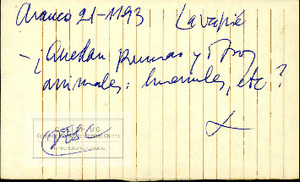 Arauco 21-1193 Lavapié
- ¿Quedan pumas y otros
animales: huemules, etc?